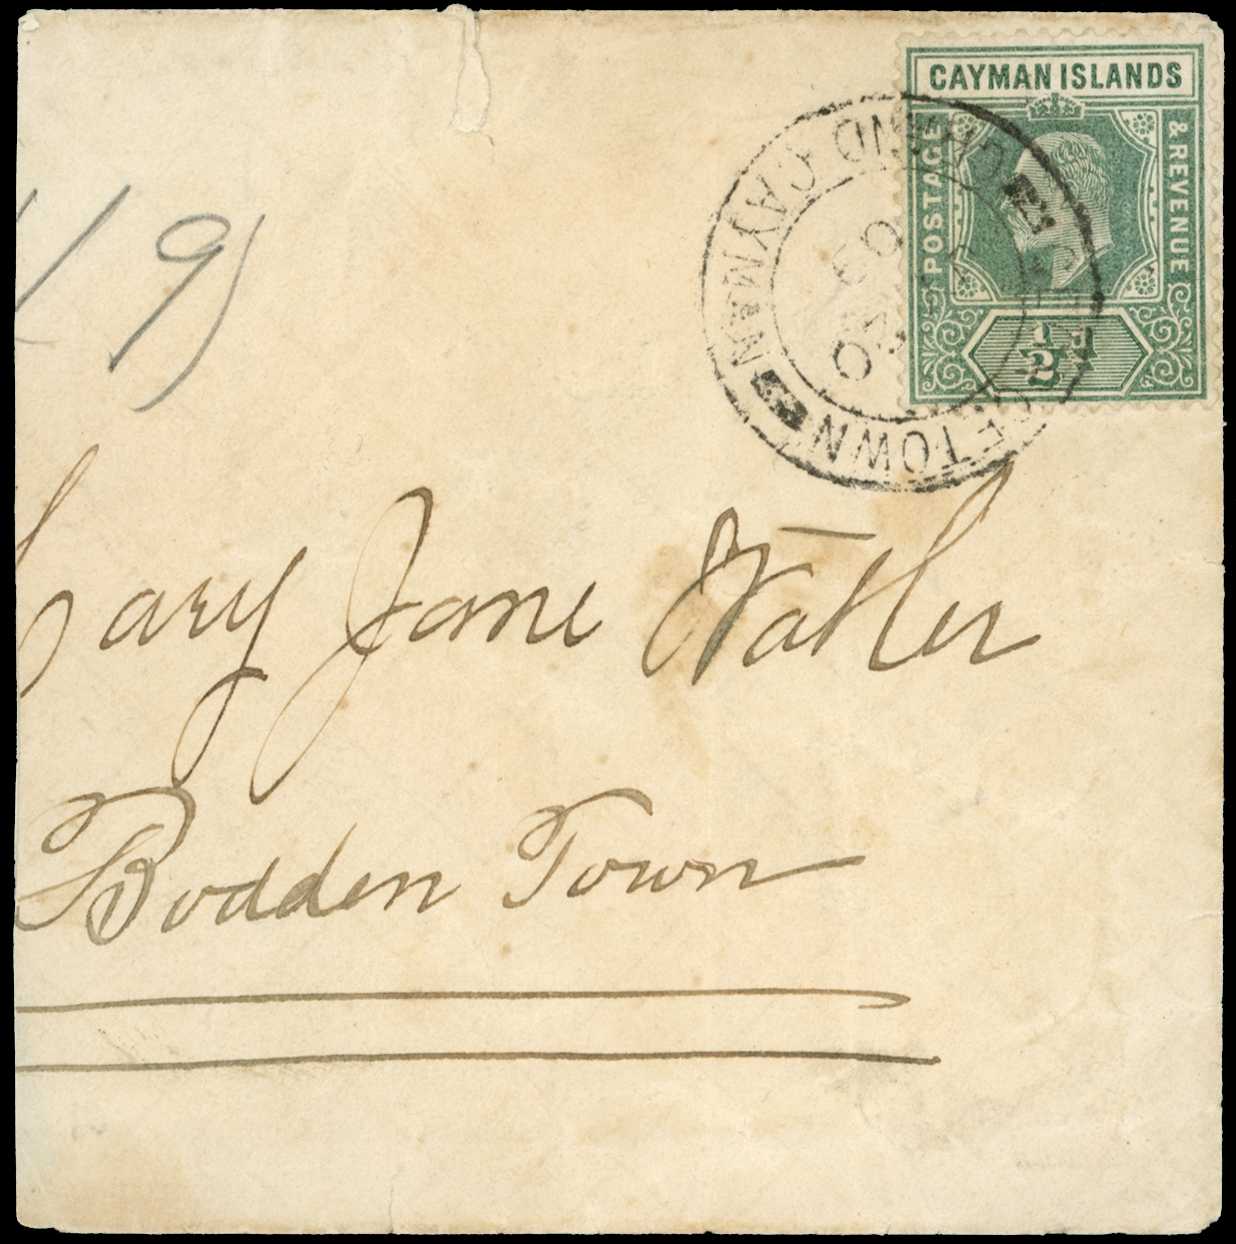 CAYMAN ISLANDS
POSTAGE
& REVENUE
½d
GRAND CAYMAN
GETOWN
19)
ary Jane Watler
Bodden Town